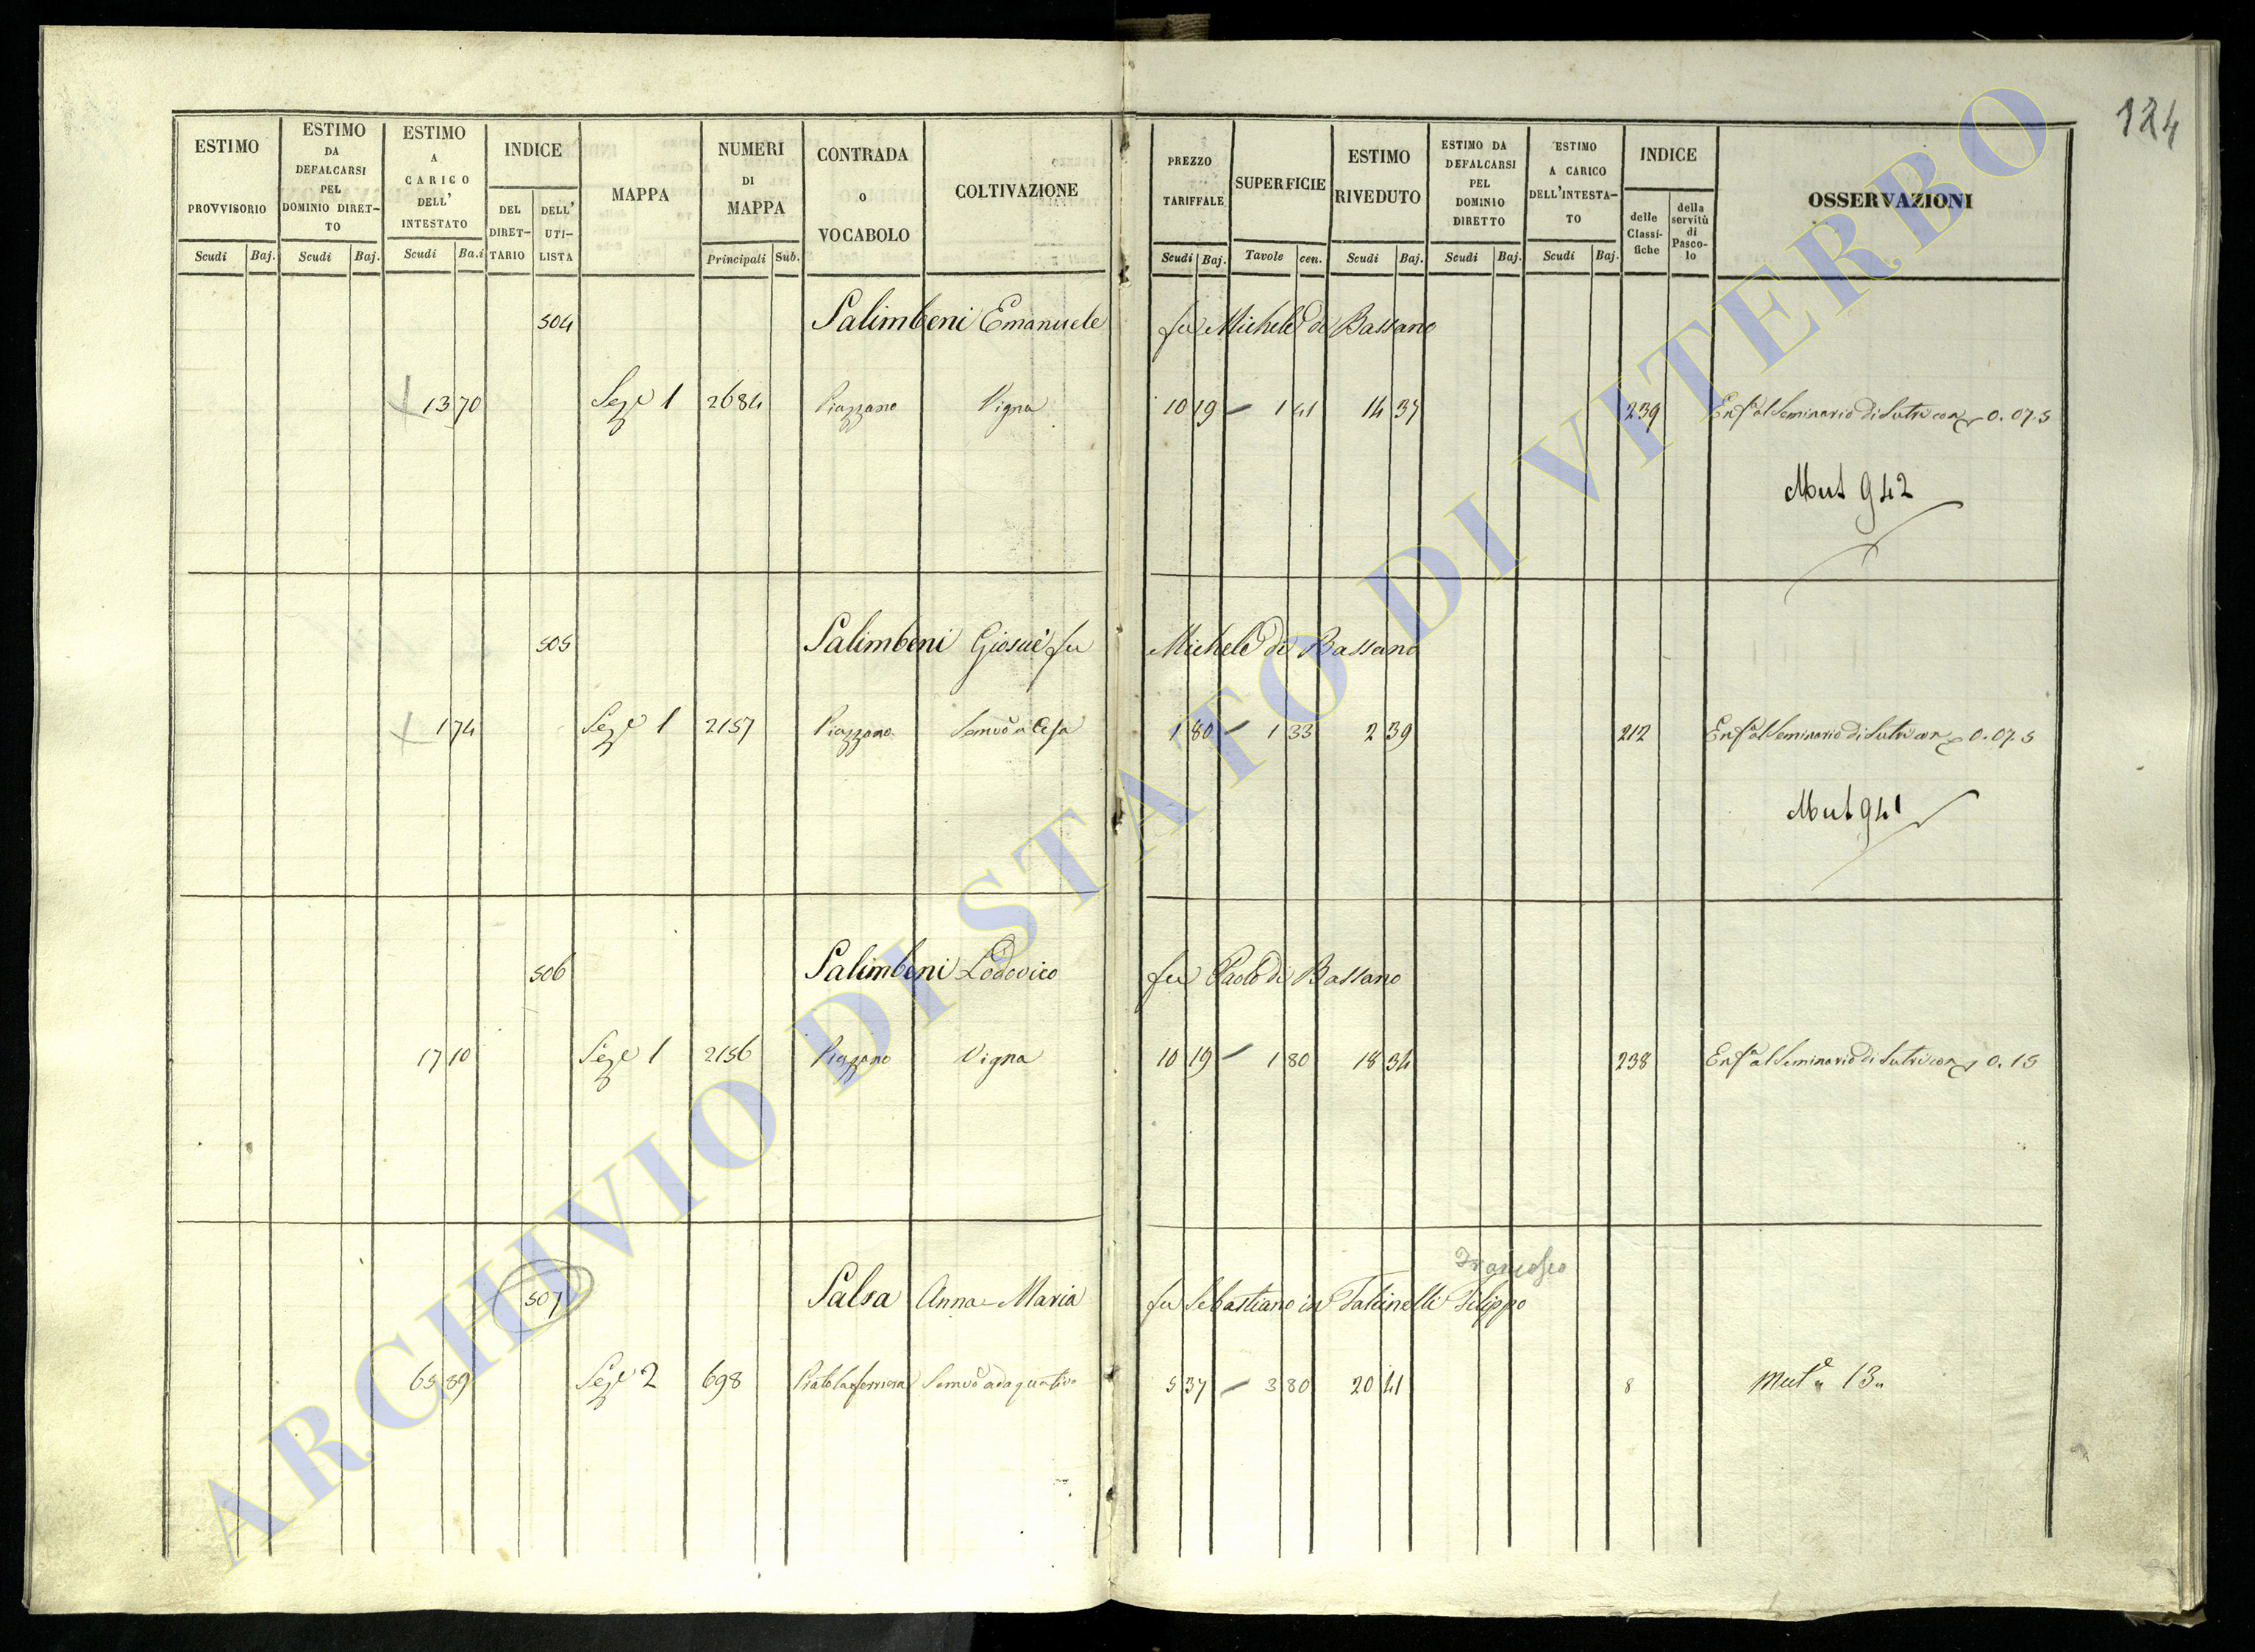 124
ESTIMO PROVVISORIO
ESTIMO DA DEFALCARSI PEL DOMINIO DIRET-TO
ESTIMO A CARICO DELL' INTESTATO
INDICE
DEL DIRET-TARIO
DELL' UTI-LISTA
MAPPA
NUMERI DI MAPPA
CONTRADA o VOCABOLO
COLTIVAZIONE
PREZZO TARIFFALE
SUPERFICIE
ESTIMO RIVEDUTO
ESTIMO DA DEFALCARSI PEL DOMINIO DIRETTO
ESTIMO A CARICO DELL'INTESTA-TO
INDICE
delle Classi-fiche
della servitù di Pasco-lo
OSSERVAZIONI
Scudi Baj. Scudi Baj. Scudi Ba.i Principali Sub. Scudi Baj. Tavole cen. Scudi Baj. Scudi Baj. Scudi Baj.
504 Salimbeni Emanuele fu Michele di Bassano
13 70 Seze 1 2684 Piazzano Vigna 10 19 – 1 41 14 37 239 Enfa al Seminario di Sutri con 0.07.5
Mut 942
505 Salimbeni Giosuè fu Michele di Bassano
1 74 Seze 1 2157 Piazzano Semvo a Cesa 1 80 – 1 33 2 39 212 Enfa al Seminario di Sutri con 0.07.5
Mut 941
506 Salimbeni Lodovico fu Paolo di Bassano
17 10 Seze 1 2156 Piazzano Vigna 10 19 – 1 80 18 34 238 Enfa al Seminario di Sutri con 0.15
Francesco
507 Salsa Anna Maria fu Sebastiano in Falcinelli Filippo
65 89 Seze 2 698 Semvo adaquativo 5 37 – 3 80 20 41 8 Mute 13
ARCHIVIO DI STATO DI VITERBO